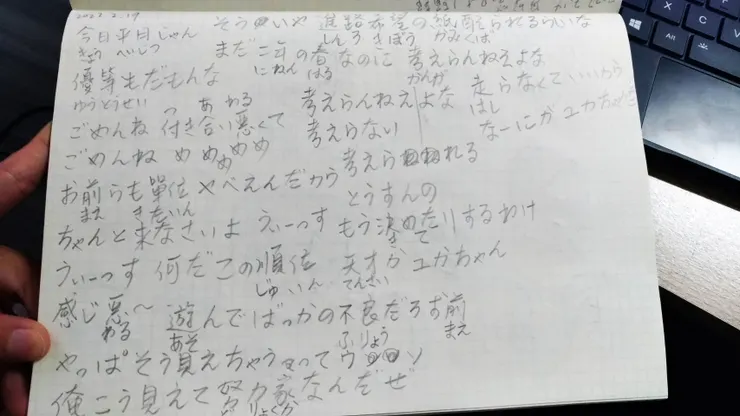 2022.2.19
今日平日じゃん そういや 進路希望の紙配られるらしいな
きょう へいじつ しんろ きぼう かみくば
まだ二年の春なのに 考えらんねえよな
にねん はる かんが
優等もだもんな
ゆうとうせい
考えらんねえよな 走らなくていいから
はし
つ あ わる
ごめんね 付き合い悪くて 考えらない なーにがユカちゃん
ごめんね めめめめ 考えられる
お前らも単位やべえんだから とうすんの
まえ
ちゃんと来なさいよ うぃーっす もう決めたりするわけ
き
うぃーっす 何だこの順位 天才かユカちゃん
じゅいん てんさい
感じ悪〜 遊んでばっかの不良だろお前
わる あそ ふりょう まえ
やっぱそう見えちゃう
俺こう見えて努力家なんだぜ